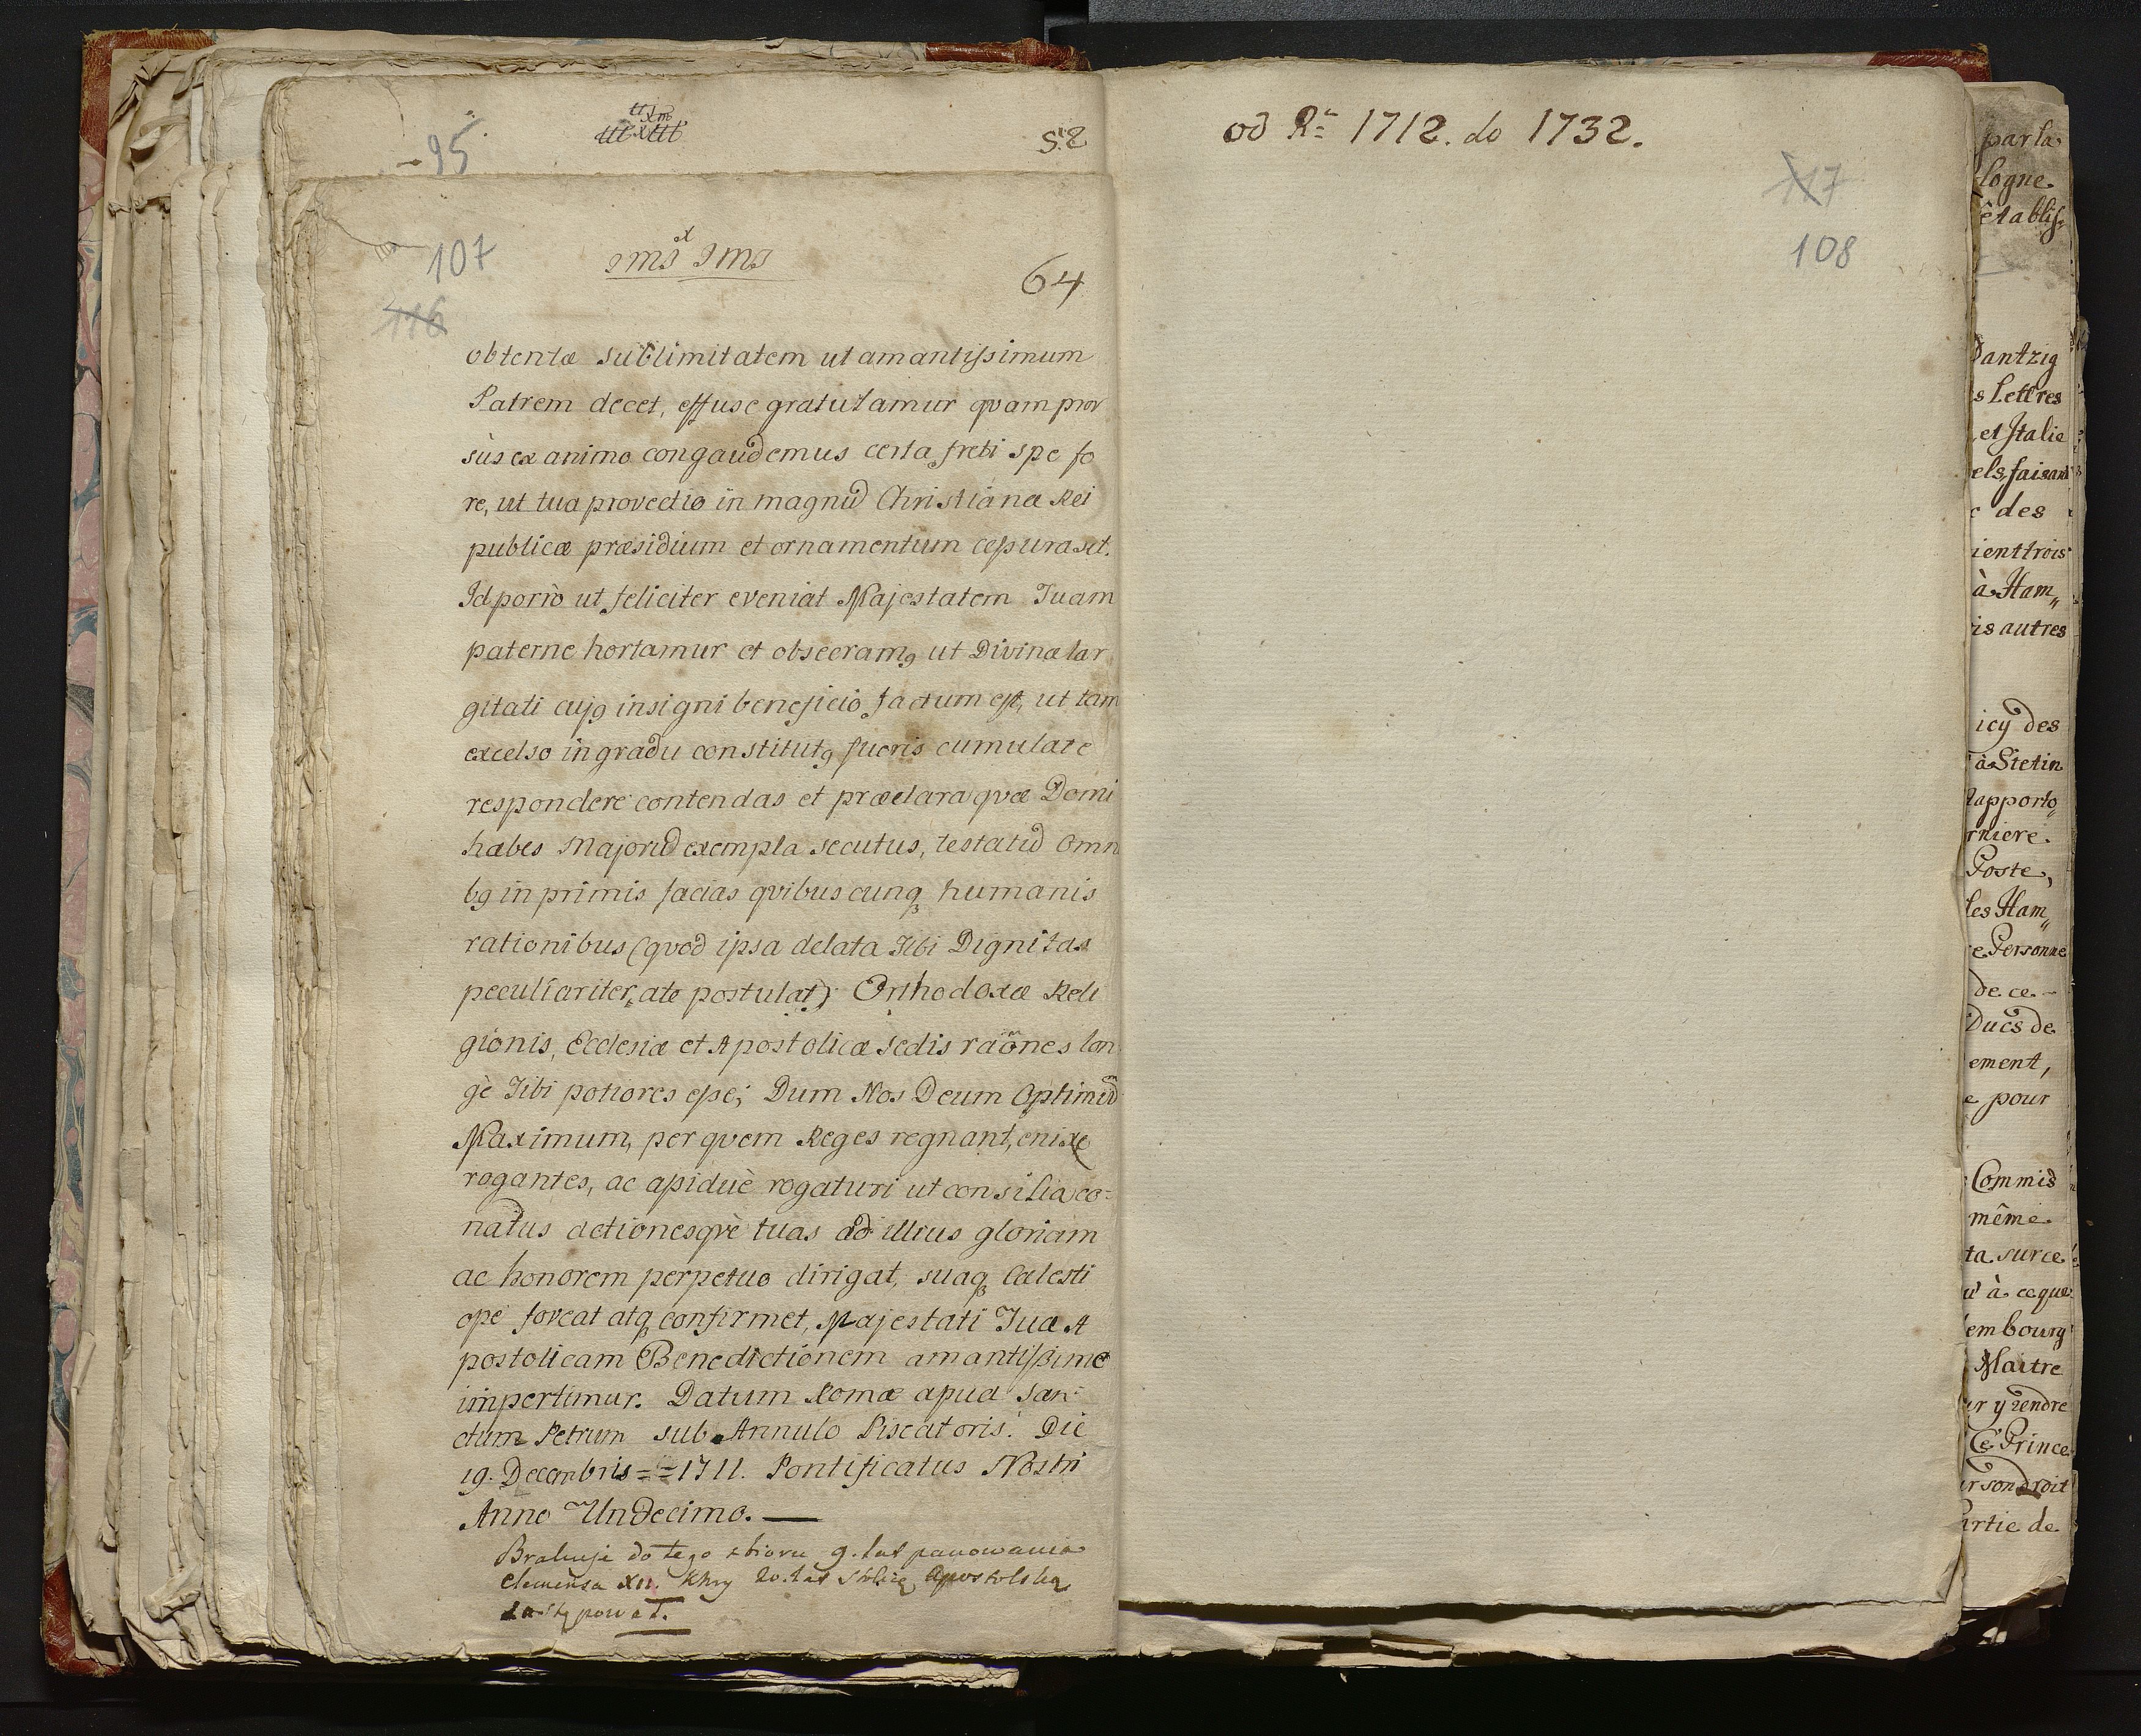 95
52
107
64
116
obtentæ sublimitatem ut amantissimum
Patrem decet, effuse gratulamur qvam pror
sùs ex animo congaudemus certa freti spe fo
re, ut tua provectio in magnū Christianæ Rei
publicæ præsidium et ornamentum cessura sit.
Id porrò ut feliciter eveniat Majestatem Tuam
paterne hortamur et obsecramꝰ ut Divinæ lar
gitati cujꝰ insigni beneficio factum est, ut tam
excelso in gradu constitutꝰ fueris cumulate
respondere contendas et præclara qvæ Domi
habes Majorū exempla secutus, testatū Omn
bꝰ in primis facias qvibuscunqꝫ humanis
rationibus (qvod ipsa delata Tibi Dignitas
peculiariter, a te postulat) Orthodoxæ Reli
gionis, Ecclesiæ et Apostolicæ Sedis raōnes lon
gè Tibi potiores esse; Dum Nos Deum Optimū
Maximum, per qvem Reges regnant, enixe
rogantes, ac assiduè rogaturi ut consilia co=
natus actionesqvè tuas ad illius gloriam
ac honorem perpetuo dirigat, suaqꝫ Cælesti
ope foveat atqꝫ confirmet, Majestati Tuæ A
postolicam Benedictionem amantissime
impertimur. Datum Romæ apud San=
ctum Petrum sub Annulo Piscatoris. Die
19. Decembris = = 1711. Pontificatus Nostri
Anno Undecimo. —
Brakuje do tego zbioru 9. lat panowania
Clemensa XII. Khry 20. lat Stolicę Apostolską
zastępował.
od Rᵘ= 1712. do 1732.
117
108
par la
logne.
établis=
Dantzig
s Lettres
et Italie
els, faisant
c des
ient trois
à Ham„
is autres
icy des
à Stetin
rapporto„
rniere.
Poste,
les Ham„
e Personne
de ce
Ducs de
ement,
e pour
Commis
même
ta sur ce
u' à ce que
embourg
Maitre
ur y rendre
Ce Prince
ur son droit
artie de